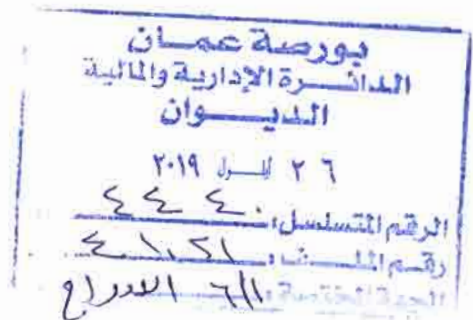 بورصة عمان
الدائرة الإدارية والمالية
الديوان
٢٦ أيلول ٢٠١٩
الرقم المتسلسل: ٤٤٤٠
رقم الملف: ٤١٠٢١
الجهة المختصة: الادراج